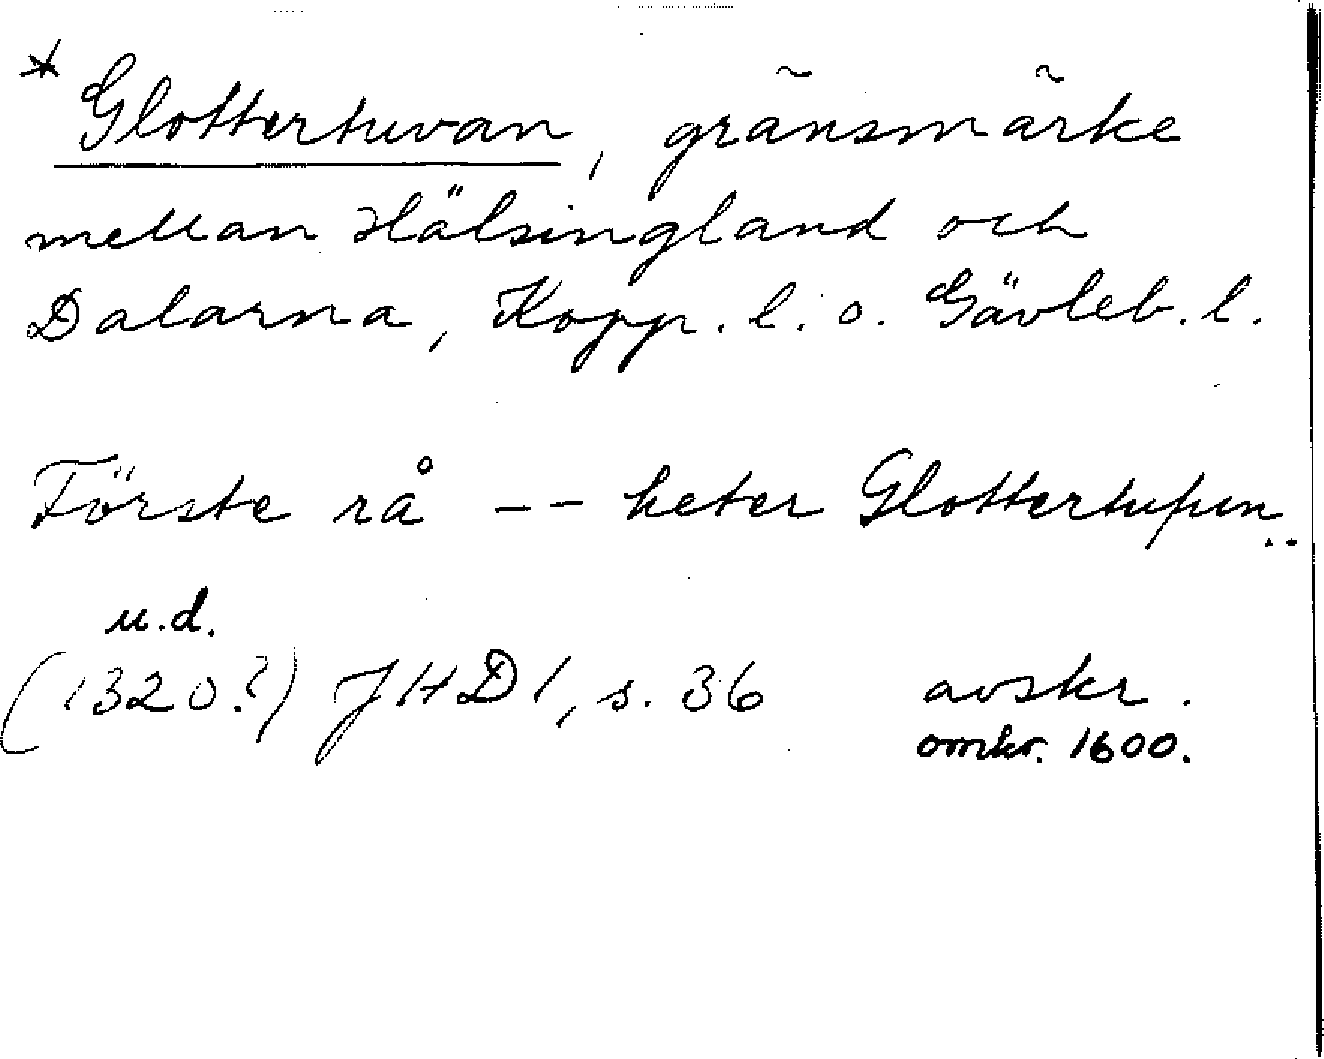 * Glottertuvan, gränsmärke
mellan Hälsingland och
Dalarna, Kopp. l. o. Gävleb. l.
Förste rå -- heter Glottertufun..
u.d.
(1320?) JHD 1, s. 36 avskr.
omkr. 1600.